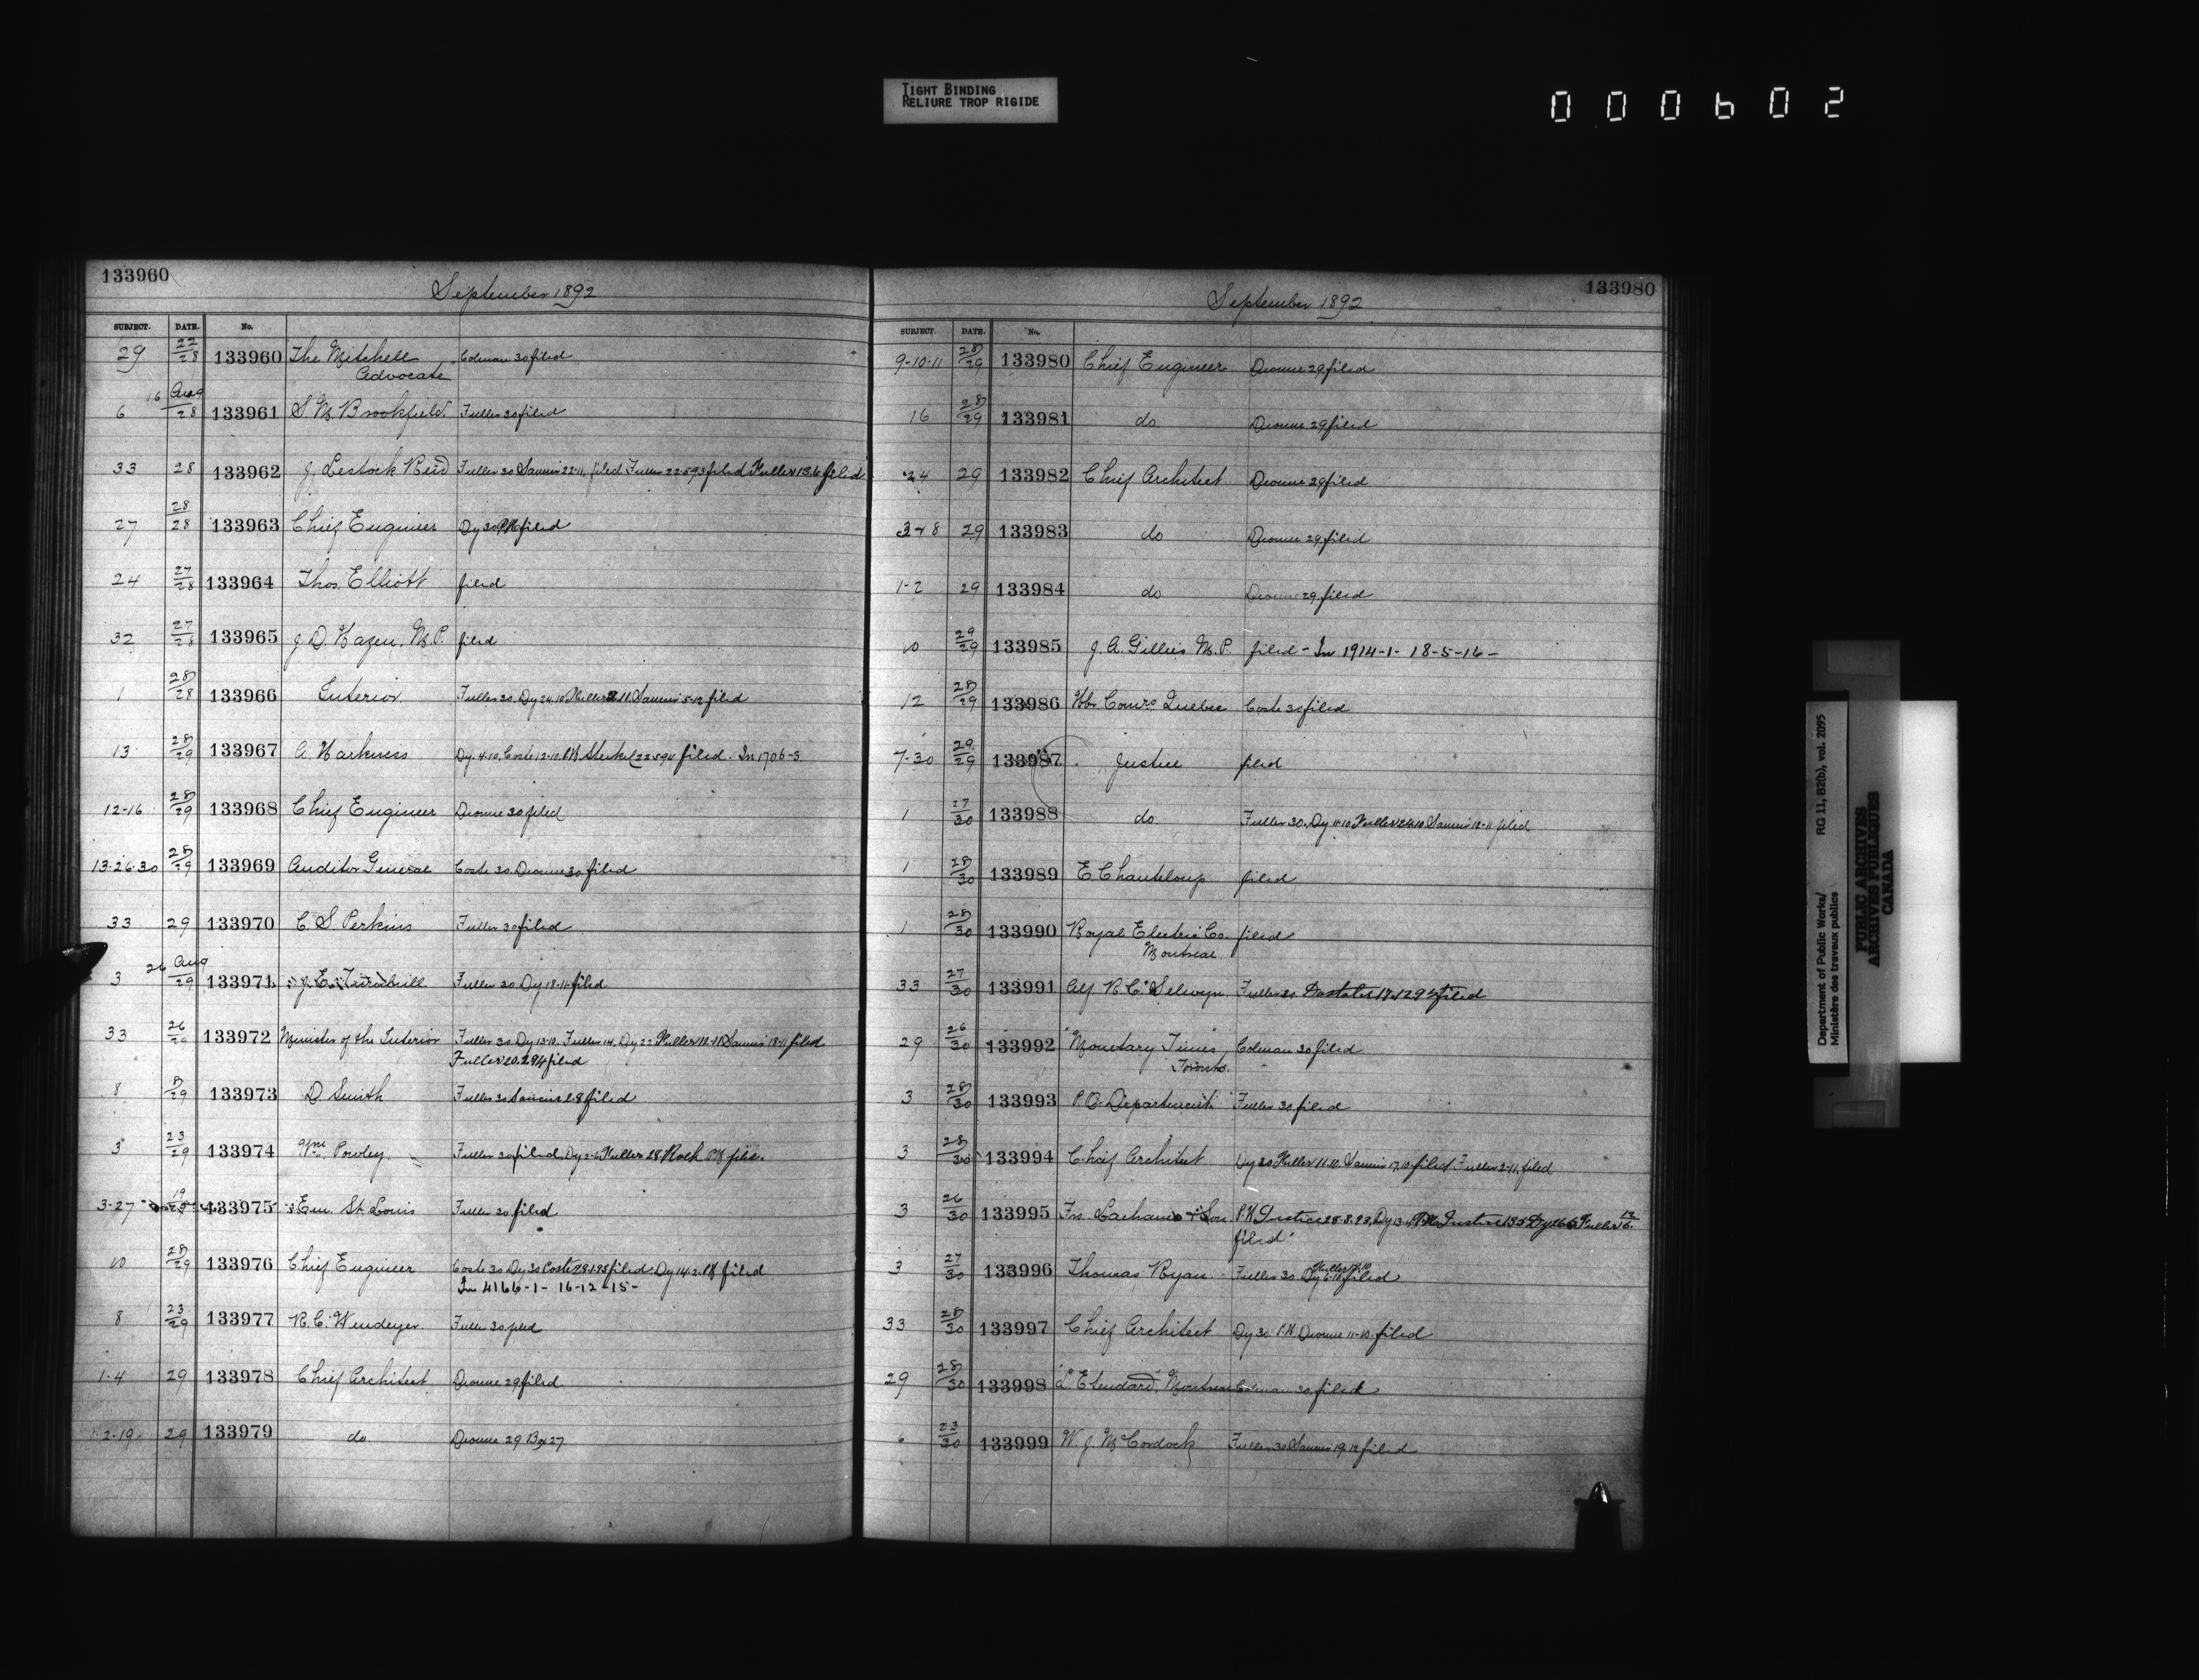 TIGHT BINDING
RELIURE TROP RIGIDE
000602
133960
September 1892
SUBJECT. DATE. No.
29 22/28 133960 The Mitchell Coleman 30 filed
Advocate
6 16 Aug/28 133961 S. M. Brookfield Fuller 30 filed
33 28 133962 J. Lestock Reid Fuller 30 22-11 filed Fuller 22-5-93 filed Fuller 13.6 filed
27 28/28 133963 Chief Engineer Dy 30 PM filed
24 27/28 133964 Thos. Elliott filed
32 27/28 133965 J. D. Hazen, M.P. filed
1 28/28 133966 Interior Fuller 30. Dy 24.10 Fuller 5-12 filed
13 28/29 133967 A. Harkness Dy. 4-10. Coste 12-10. filed. In 1706-3
12-16 28/29 133968 Chief Engineer Dionne 30 filed
13-26-30 28/29 133969 Auditor General Coste 30 Dionne 30 filed
33 29 133970 C. S. Perkins Fuller 30 filed
3 26 Aug/29 133971 J. E. Turnbull Fuller 30 Dy 18-11 filed
33 26/29 133972 Minister of the Interior Fuller 30. Dy 13-10. Fuller 14. Dy 22 Fuller 18-11 filed
Fuller 20.2.94 filed
8 8/29 133973 D Smith Fuller 30 filed
3 23/29 133974 Wm. Powley Fuller 30 filed, Dy 2-6 Fuller 28.
3-27 133975 Em. St. Louis Fuller 30 filed
10 28/29 133976 Chief Engineer Coste 30 Dy 30 Coste filed. Dy 14-2. filed
In 4166-1-16-12-15-
8 23/29 133977 R. C. Windeyer Fuller 30 filed
1-4 29 133978 Chief Architect Dionne 29 filed
2-19 29 133979 do Dionne 29 Box 27
133980
September 1892
SUBJECT. DATE. No.
9-10-11 28/29 133980 Chief Engineer Dionne 29 filed
16 28/29 133981 do. Dionne 29 filed
24 29 133982 Chief Architect Dionne 29 filed
3-8 29 133983 do Dionne 29 filed
1-2 29 133984 do Dionne 29 filed
10 29/29 133985 J. A. Gillies M.P. filed - In 1914-1- 18-5-16-
12 28/29 133986 Hbr. Comrs. Quebec Coste 30 filed
7-30 29/29 133987 Justice filed
1 27/30 133988 do. Fuller 30. Dy 11-10 Fuller 24.10 12-11 filed
1 28/30 133989 E. Chanteloup filed
1 28/30 133990 Royal Electric Co. filed
Montreal
33 27/30 133991 Alf R. C. Selwyn Fuller 30 filed
29 26/30 133992 "Monetary Times," Coleman 30 filed
Toronto.
3 28/30 133993 P.O. Department Fuller 30 filed
3 28/30 133994 Chief Architect Dy 30 Fuller 11.10. 17.10. filed Fuller 2-11. filed
3 26/30 133995 Frs. & Son Justice 28.8.93. Dy 13-4 Justice Dy Fuller
filed
3 27/30 133996 Thomas Ryan Fuller 30 Dy 6-10 filed
33 28/30 133997 Chief Architect Dy 30 P.M. Dionne 11-10. filed
29 28/30 133998 "L'Etendard," Montreal Coleman 30 filed
6 23/30 133999 W. J. McCordock Fuller 30 19.12 filed
Department of Public Works/ RG 11, B2(b), vol. 2095
Ministère des travaux publics
PUBLIC ARCHIVES
ARCHIVES PUBLIQUES
CANADA